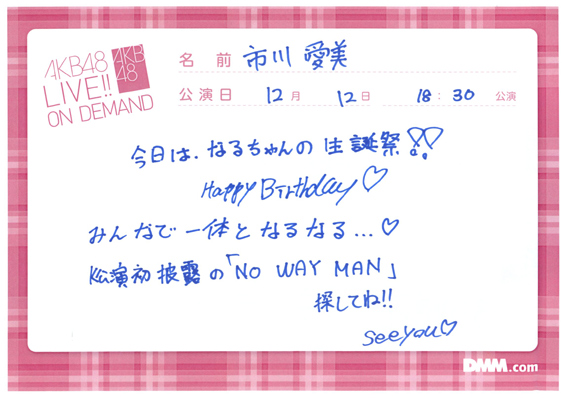 AKB48
LIVE!!
ON DEMAND
AKB
48
名前 市川 愛美
公演日 12月 12日 18:30 公演
今日は、なるちゃんの生誕祭!!
Happy Birthday♡
みんなで一体となるなる...♡
公演初披露の「NO WAY MAN」
探してね!!
see you♡
DMM.com